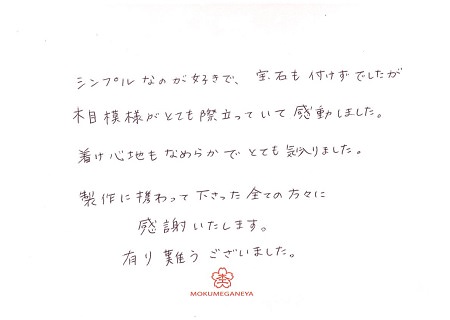 シンプルなのが好きで、宝石も付けずでしたが
木目模様がとても際立っていて感動しました。
着け心地もなめらかでとても気入りました。
製作に携わって下さった全ての方々に
感謝いたします。
有り難うございました。
MOKUMEGANEYA